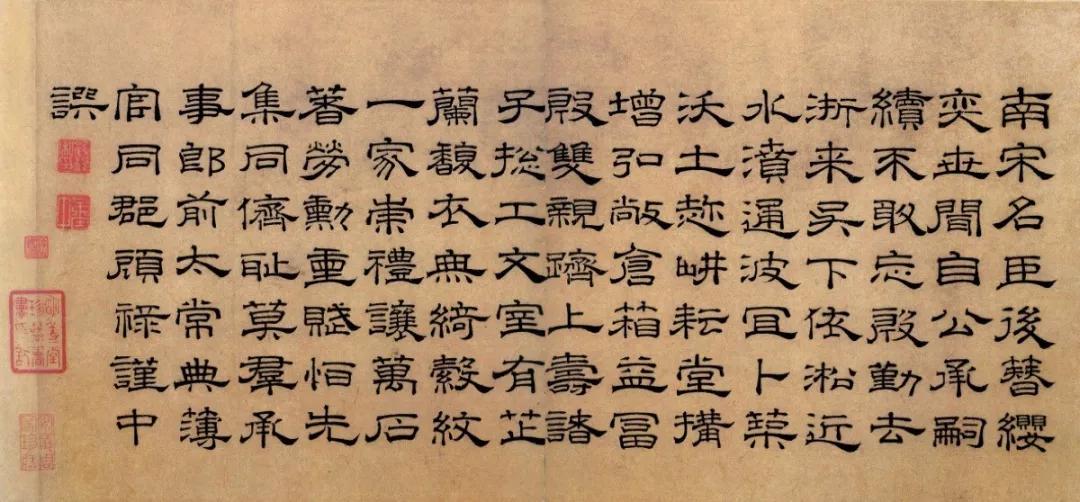 南宋名臣後簪纓
奕世聞自公承嗣
續不敢忘殷勤去
浙来吴下依淞近
水濆通波冝卜築
沃土趂畊耘堂搆
增弘敞倉箱益冨
殷雙親躋上壽諸
子捴工文室有芷
蘭馥衣無綺縠紋
一家崇禮讓萬石
著勞勳重賦怕先
集同儕耻莫羣承
事郎前太常典簿
官同郡顧祿謹中
譔
明善堂
珍藏書
畫印記